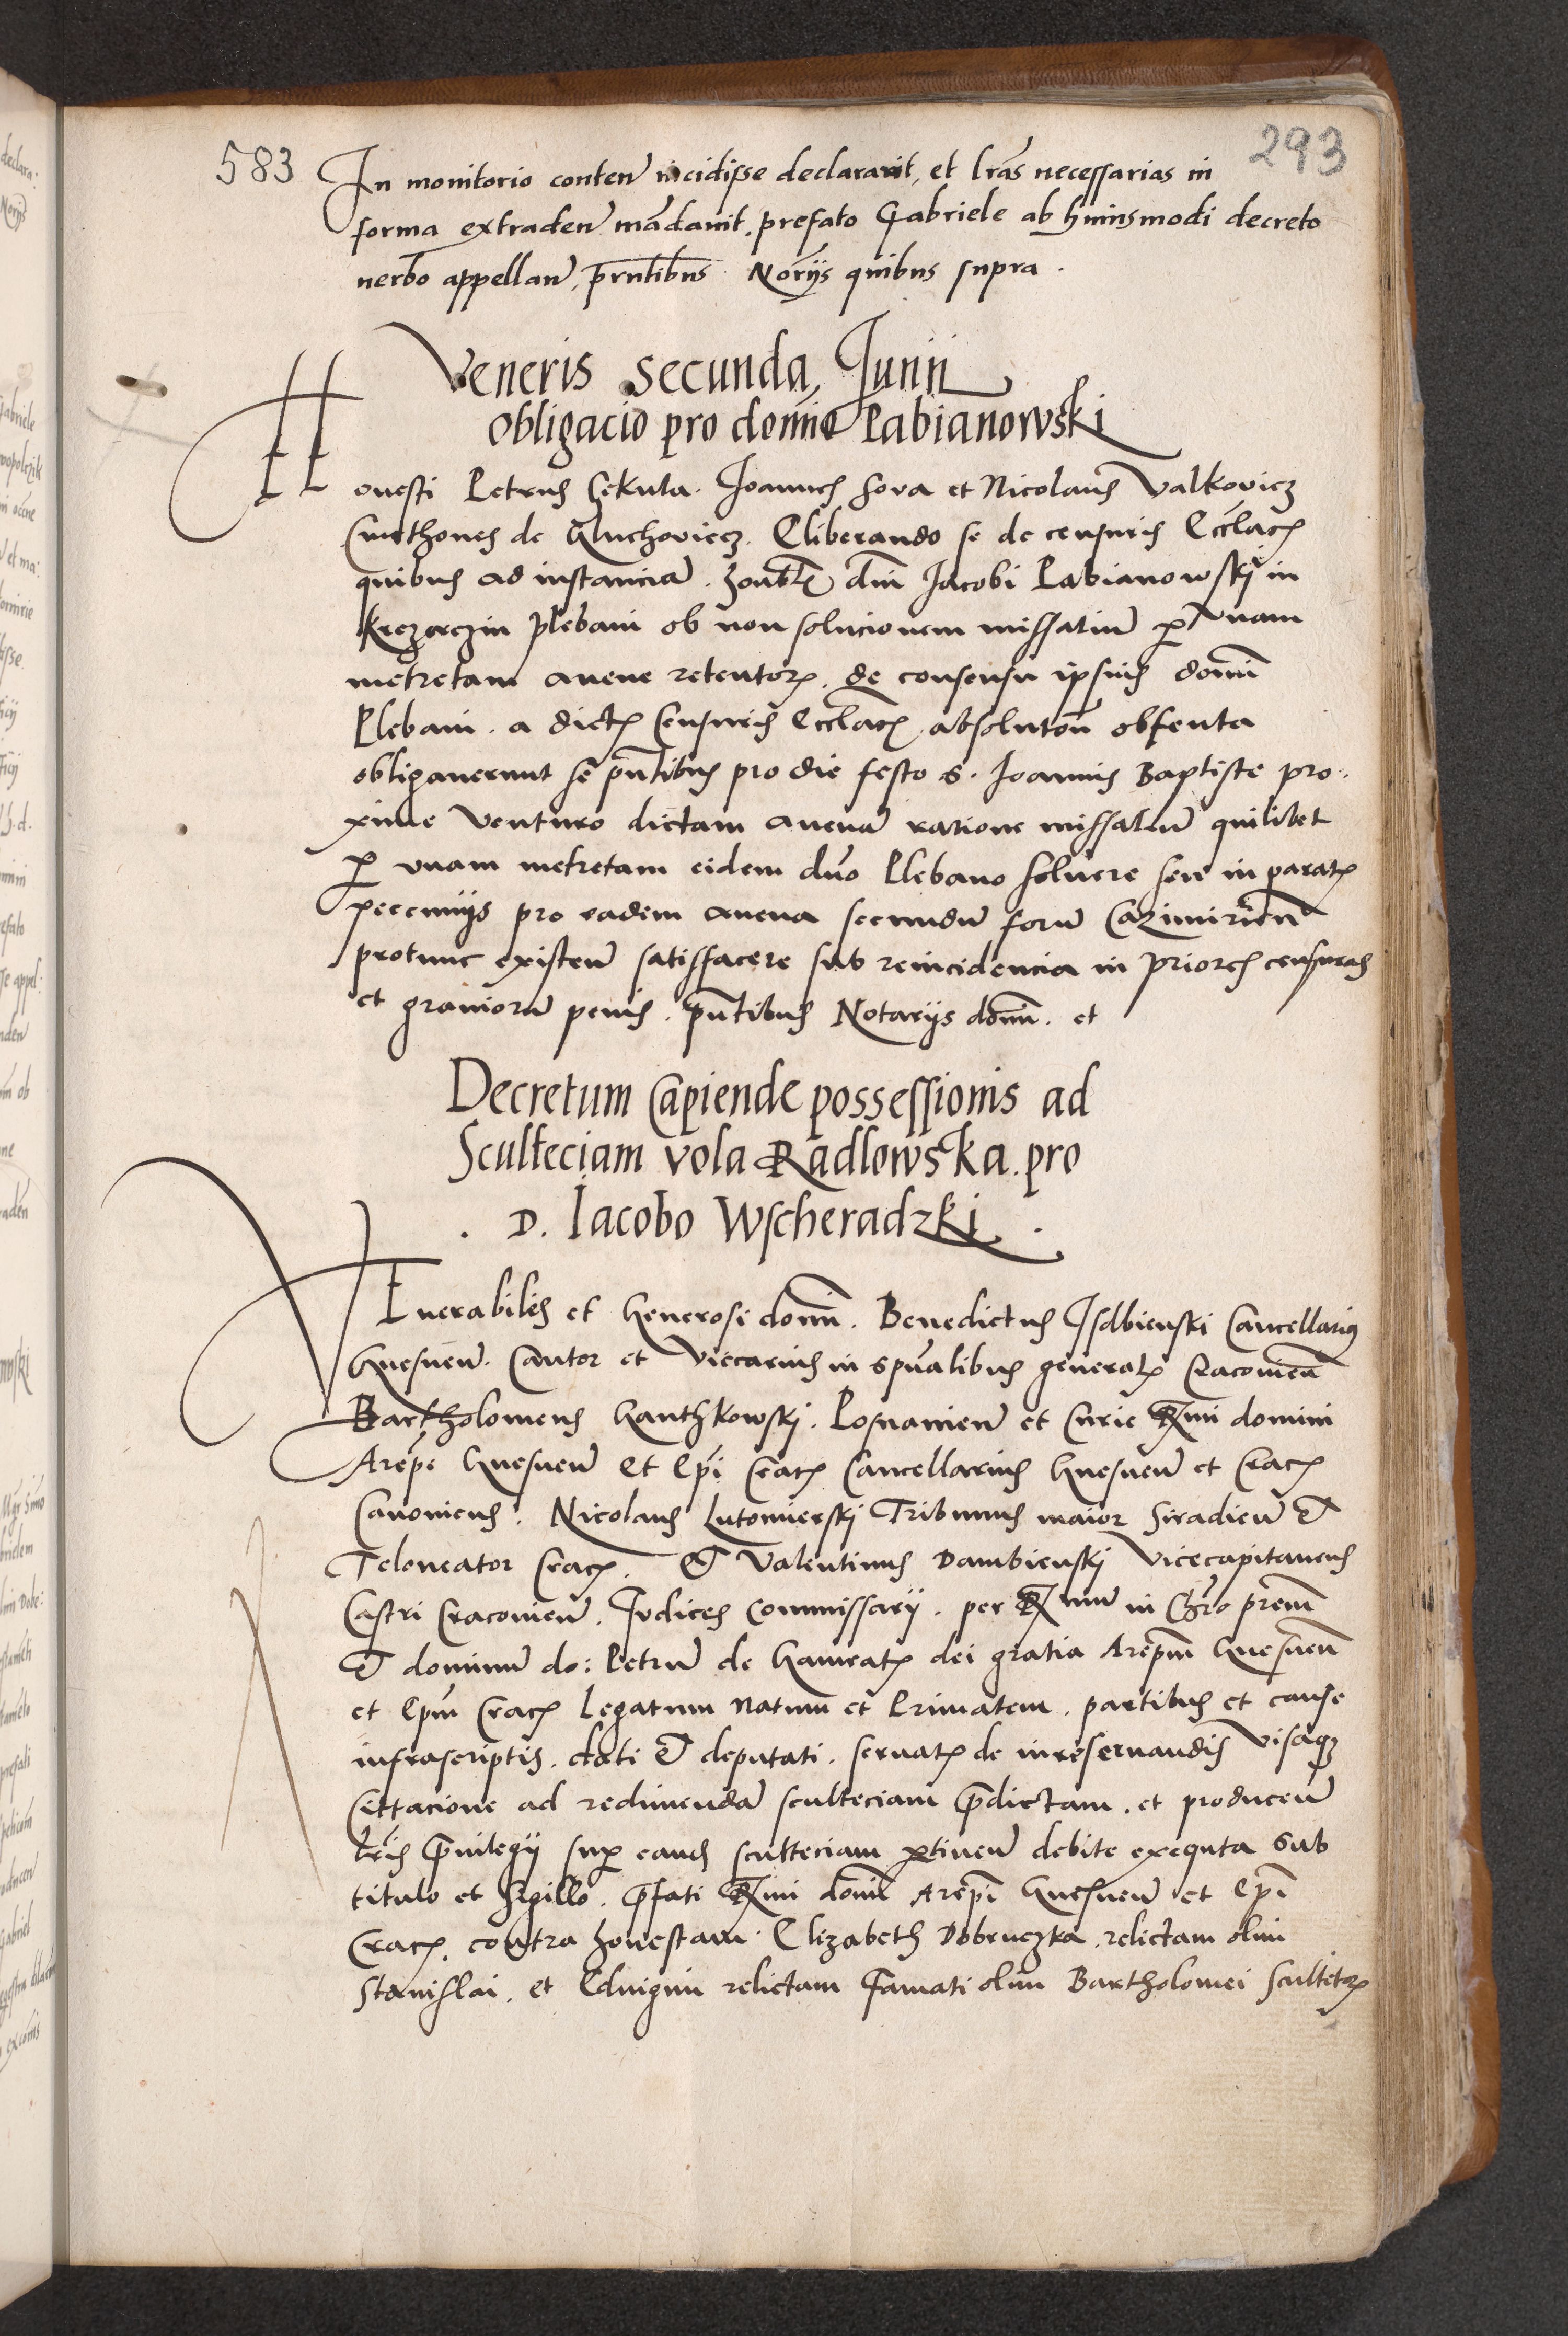 583 293
In monitorio conten̄ incidisse declaravit, et lr̄as necessarias in
forma extraden̄ mādauit, prefato Gabriele ab huiusmodi decreto
uerbo appellan̄, pr̄ntibus Nor̄ijs quibus supra.
Veneris secunda Junij
obligacio pro domino Pabianowski
Honesti Petrus Sekula. Joannes Sova et Nicolaus Valkovicz
Cmethones de Gluchovicz. Eliberando se de censuris Eccl̄ac̄
quibus ad instanciā. honbl̄ dn̄i Jacobi Pabianowskj in
plebani ob non solucionem missaliū per vnam
metretam avene retentor̄. de consensu ipsius domini
Plebani. a dictis Censuris Eccl̄ac̄. absolutōn̄ obtenta
obligauerunt se pn̄tibus pro die festo S. Joannis Baptiste pro:
xime venturo dictam avenā ratione missaliū quilibet
per vnam metretam eidem dn̄o Plebano soluere seu in parat̄
peccunijs pro eadem avena secundū forū Cazimirien̄
protunc existen̄ satisfacere sub reincidencia in priores censuras
et grauiorū penis. pn̄tibus Notarijs domini. et
Decretum Capiende possessionis ad
Sculteciam vola Radlowska. pro
. D. Jacobo Wscheradzki .
VEnerabiles et Generosi domini. Benedictus Isdbienski Cancellarius
Gnesnen̄. Cantor et Viccarius in spūalibus generalis Cracovien̄
Bartholomeus Ganthkowskj. Posnanien̄ et Curie Rx̄mi domini
Arep̄i Gnesnen̄ Et Ep̄i Crac̄ Cancellarius Gnesnen̄ et Crac̄
Canonicus. Nicolaus Lutomierskj Tribunus maior Siradien̄ &
Teloneator Crac̄. & Valentinus Dambienskj Vicecapitaneus
Castri Cracovien̄. Judices Commissarij. per Rx̄mum in Chr̄o prem̄
& dominū do: Petrū de Gamrat̄ dei gratia Arep̄m Gnesnen̄
et Ep̄m Crac̄ Legatum Natum et Primatem. partibus et cause
infrascriptis. dati & deputati. seruatis de iure seruandis Visaqȝ
Cittacione ad redimendā sculteciam p̄dictam. et producen̄
lr̄is p̄uilegij super eandē sculteciam pertinen̄ debite exequta Sub
titulo et Sigillo. p̄fati Rx̄mi domini Arep̄i Gnesnen̄ et Ep̄i
Crac̄. contra honestam. Elizabeth Dobruczka. relictam olim
Stanislai. et Eduigim relictam Famati olim Bartholomei scultetor̄